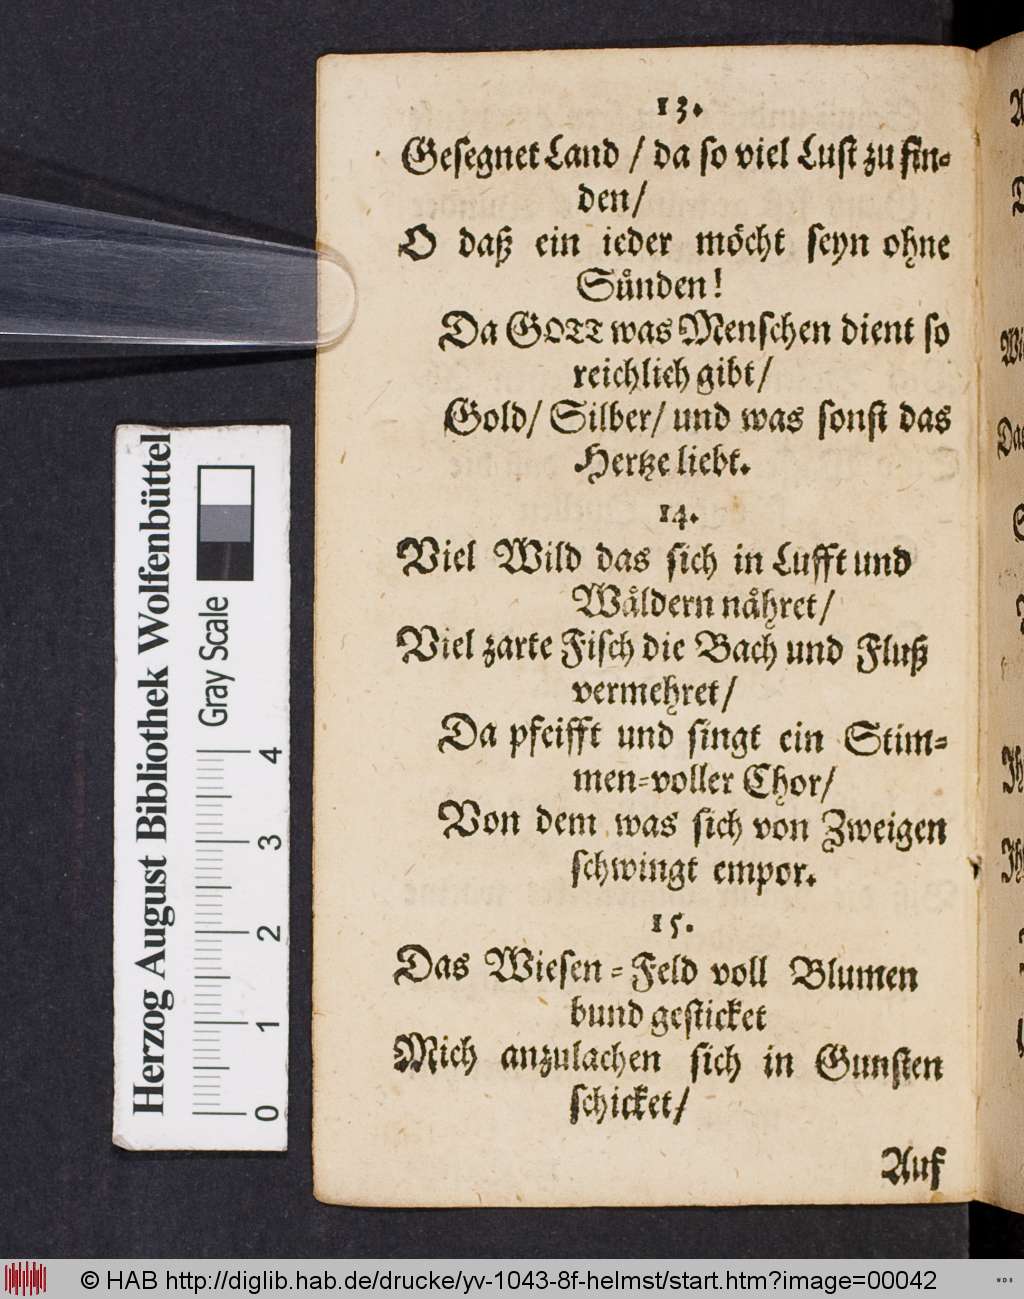 13.
Gesegnet Land / da so viel Lust zu fin-
den/
O daß ein ieder möcht seyn ohne
Sünden!
Da GOTT was Menschen dient so
reichlich gibt/
Gold/ Silber/ und was sonst das
Hertze liebt.
14.
Viel Wild das sich in Lufft und
Wäldern nähret/
Viel zarte Fisch die Bach und Fluß
vermehret/
Da pfeifft und singt ein Stim-
men-voller Chor/
Von dem was sich von Zweigen
schwingt empor.
15.
Das Wiesen-Feld voll Blumen
bund gesticket
Mich anzulachen sich in Gunsten
schicket/
Auf
Herzog August Bibliothek Wolfenbüttel
Gray Scale
0 1 2 3 4
© HAB http://diglib.hab.de/drucke/yv-1043-8f-helmst/start.htm?image=00042